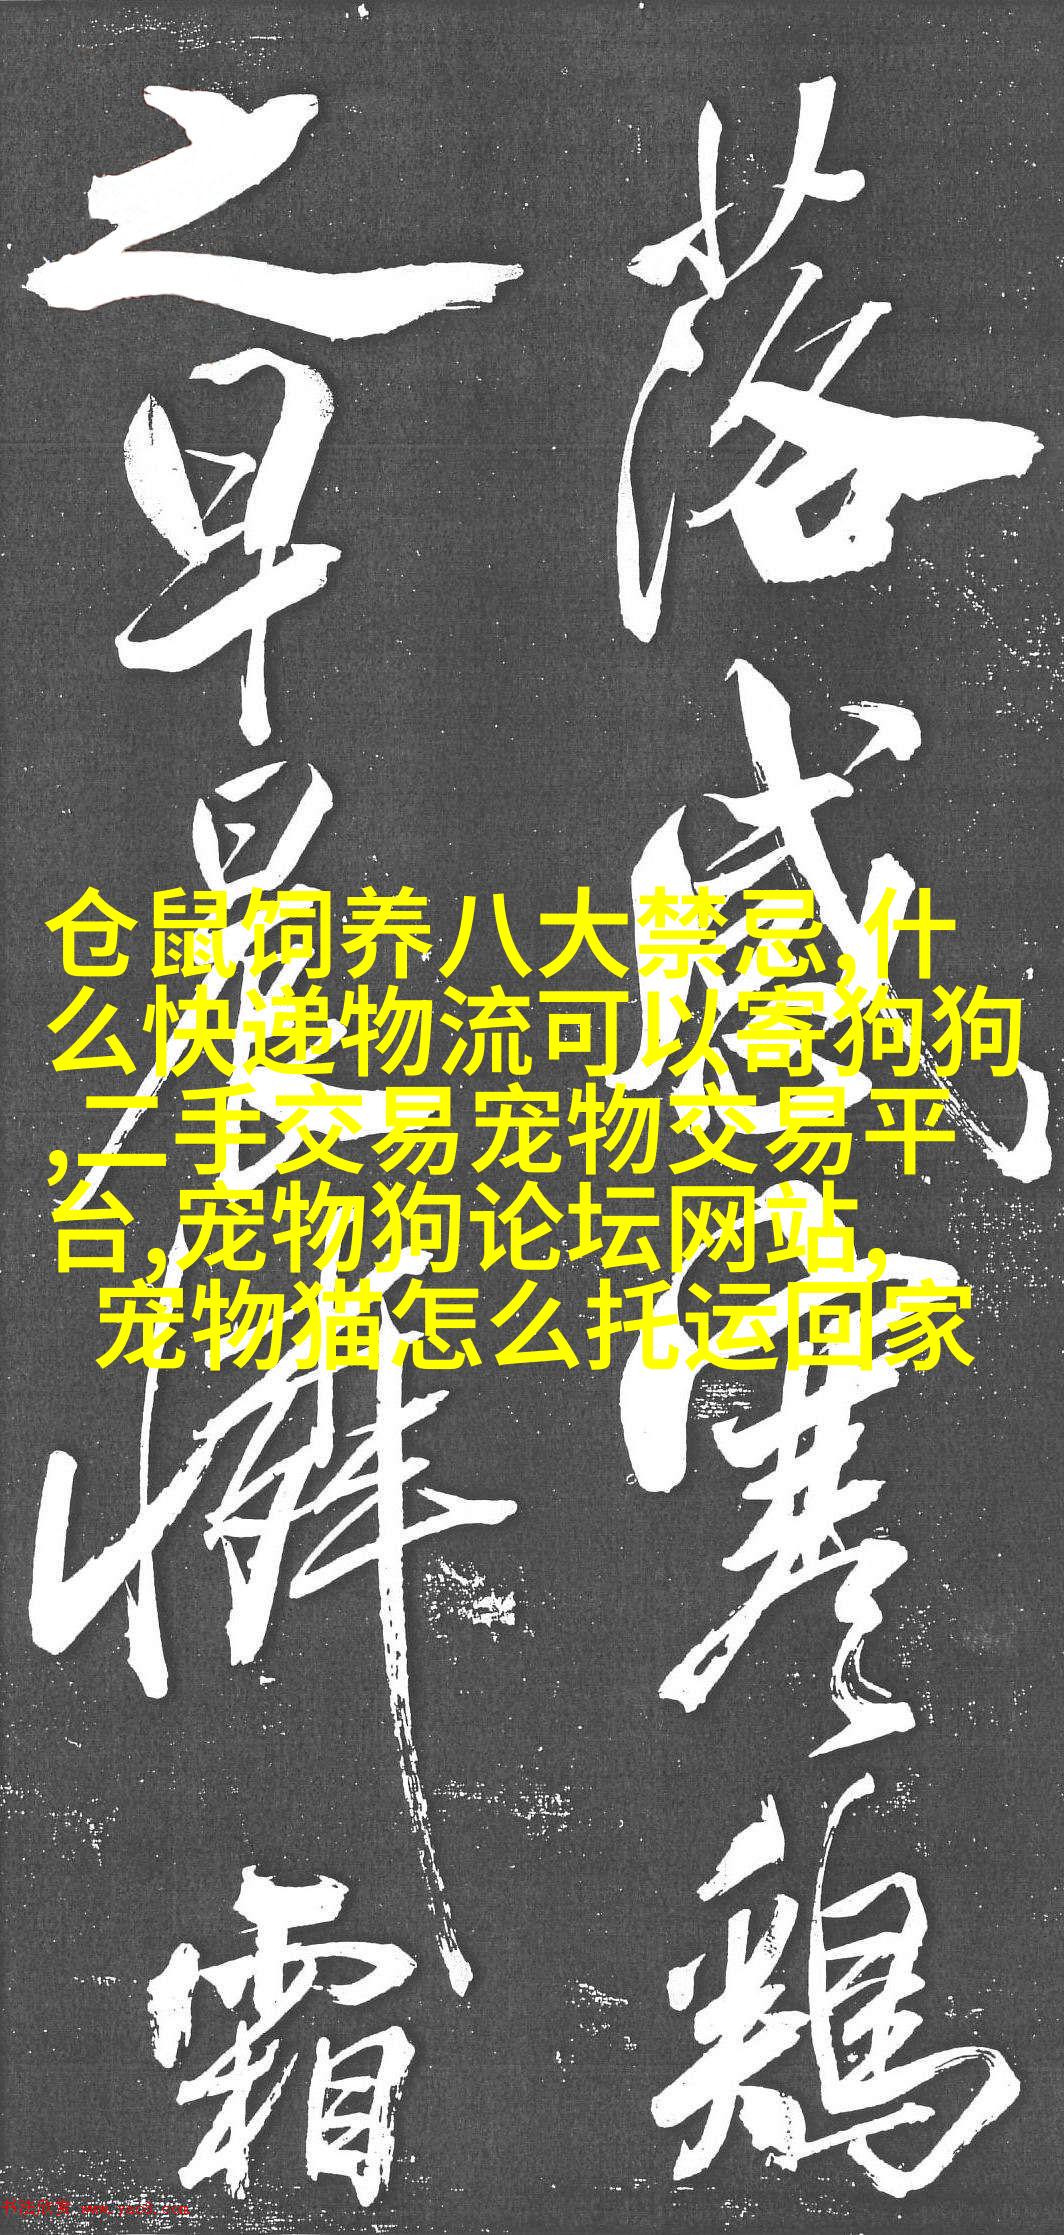 落感寒鷄
之早晨懈霜
仓鼠饲养八大禁忌,什
么快递物流可以寄狗狗
,二手交易宠物交易平
台,宠物狗论坛网站,
宠物猫怎么托运回家
书法欣赏 www.yac8.com